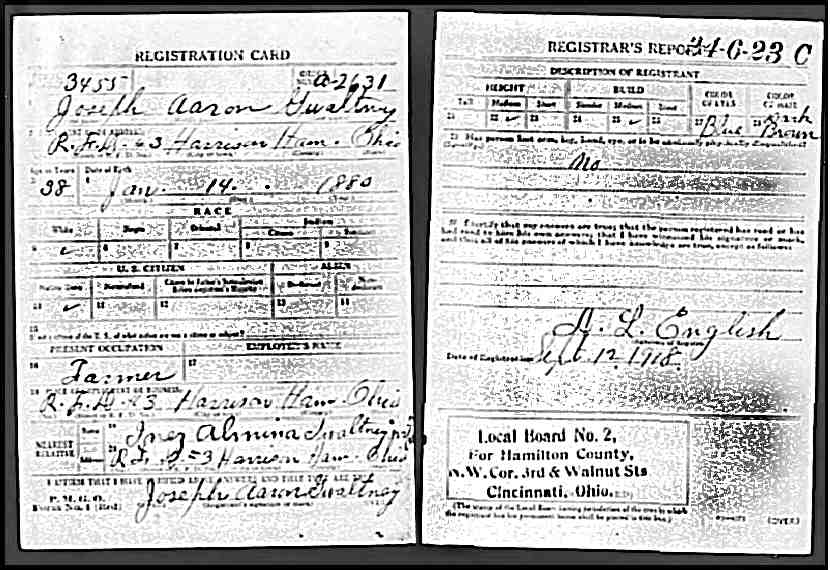 REGISTRATION CARD
3455
A-2631
Joseph Aaron Gwaltney
R.F.D. #3 Harrison Ham. Ohio
Age in Years Date of Birth
38 Jan. 14. 1880
RACE
White Negro Oriental Indian
Citizen
5 6 7 8 9
U. S. CITIZEN ALIEN
Native Born Naturalized Citizen by Father's Naturalization Before Registrant's Majority Declarant
10 11 12 13 14
15
If not a citizen of the U. S., of what nation are you a citizen or subject?
PRESENT OCCUPATION EMPLOYER'S NAME
16 17
Farmer
R.F.D. #3 Harrison Ham. Ohio
NEAREST RELATIVE
Name Inez Almina Gwaltney
Address R.F.D. #3 Harrison Ham. Ohio
I AFFIRM THAT I HAVE VERIFIED ABOVE ANSWERS AND THAT THEY ARE TRUE
P. M. G. O.
Form No. 1 (Red)
Joseph Aaron Gwaltney
REGISTRAR'S REPORT
34-6-23 C
DESCRIPTION OF REGISTRANT
HEIGHT BUILD COLOR OF EYES COLOR OF HAIR
Tall Medium Short Slender Medium Stout
21 22 23 24 25 26 27 Blue Dark Brown
29 Has person lost arm, leg, hand, eye, or is he obviously physically disqualified?
(Specify.)
No
30 I certify that my answers are true; that the person registered has read or has
had read to him his own answers; that I have witnessed his signature or mark,
and that all of his answers of which I have knowledge are true, except as follows:
A. L. English
Date of Registration Sept. 12 1918.
Local Board No. 2,
For Hamilton County,
N.W. Cor. 3rd & Walnut Sts
Cincinnati, Ohio.
(The stamp of the Local Board having jurisdiction of the area in which
the registrant has his permanent home shall be placed in this box.)
(OVER)